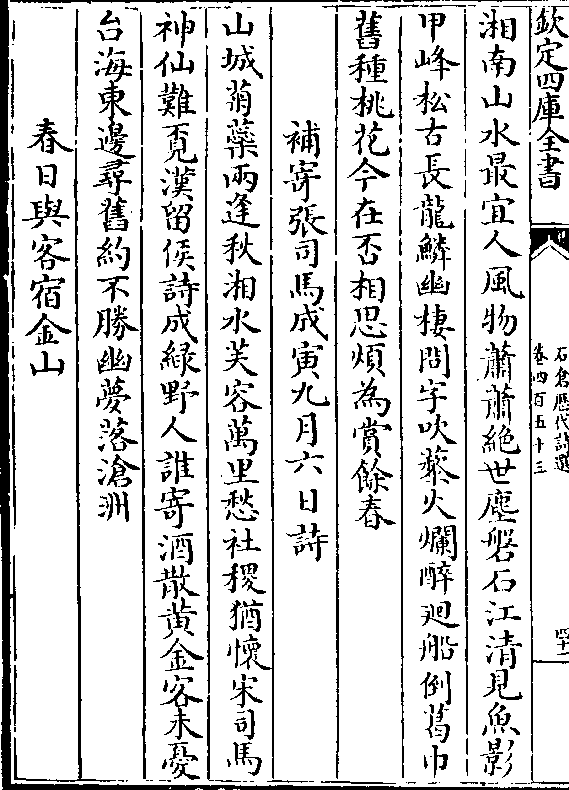 欽定四庫全書
石倉歴代詩選
卷四百五十三
四十一
湘南山水最宜人風物蕭蕭絶世塵磐石江清見魚影
甲峰松古長龍鱗幽棲問字吹藜火爛醉廻船倒葛巾
舊種桃花今在否相思煩為賞餘春
補寄張司馬戍寅九月六日詩
山城菊蘂兩逢秋湘水芙容萬里愁社稷猶懷宋司馬
神仙難覓漢留侯詩成緑野人誰寄酒散黄金客未憂
台海東邊尋舊約不勝幽夢落滄洲
春日與客宿金山